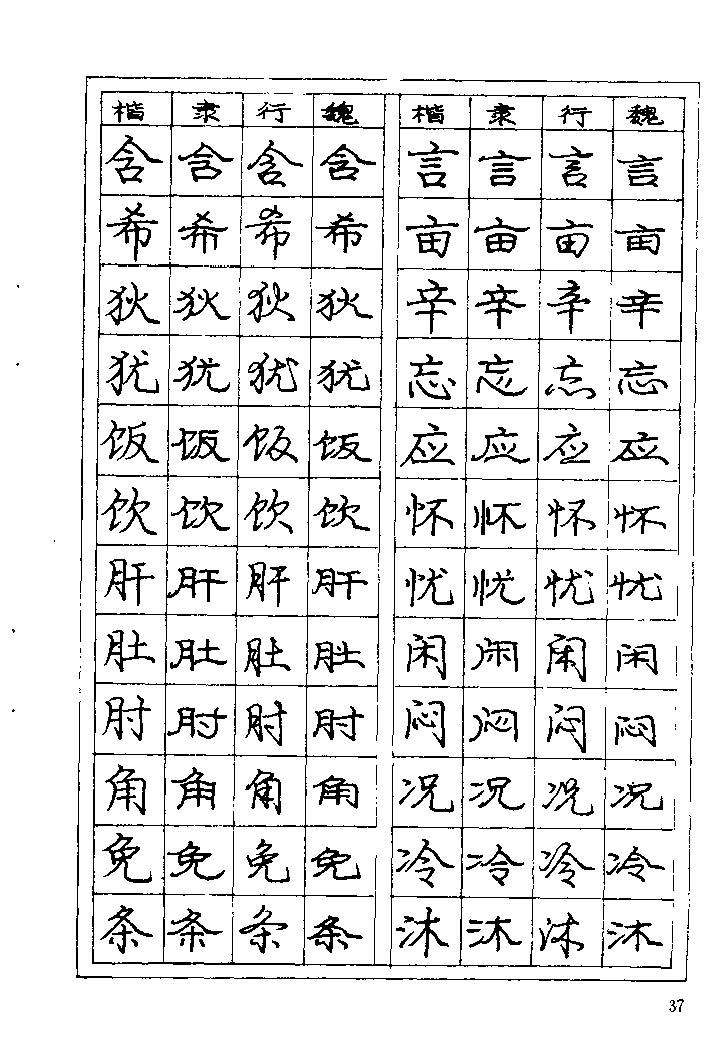 楷 隶 行 魏 楷 隶 行 魏
含 含 含 含 言 言 言 言
希 希 希 希 亩 亩 亩 亩
狄 狄 狄 狄 辛 辛 辛 辛
犹 犹 犹 犹 忘 忘 忘 忘
饭 饭 饭 饭 应 应 应 应
饮 饮 饮 饮 怀 怀 怀 怀
肝 肝 肝 肝 忧 忧 忧 忧
肚 肚 肚 肚 闲 闲 闲 闲
肘 肘 肘 肘 闷 闷 闷 闷
角 角 角 角 况 况 况 况
免 免 免 免 冷 冷 冷 冷
条 条 条 条 沐 沐 沐 沐
37